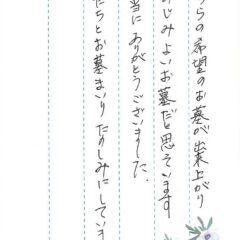 らの希望のお墓が出来上がり
なじみよいお墓だと思っています
当に ありがとうございました。
たちとお墓まいり たのしみにしていま